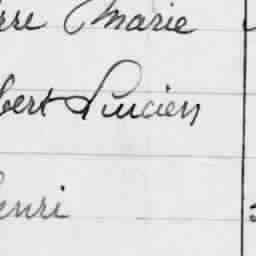 rre Marie
bert Lucien
enri